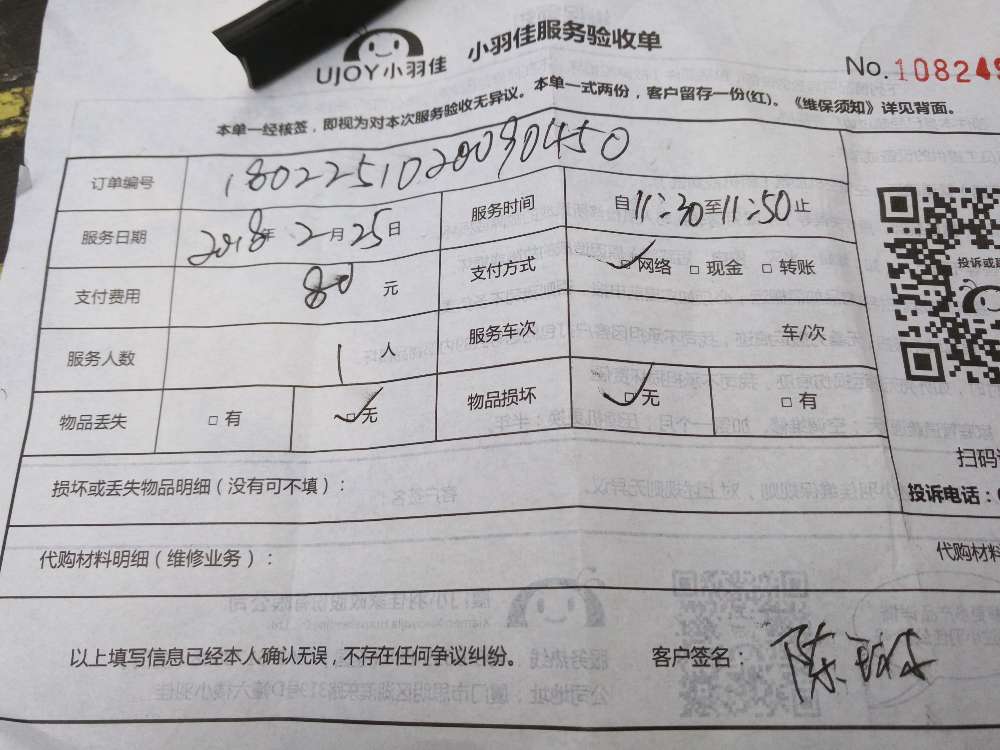 UJOY小羽佳 小羽佳服务验收单
No.108249
本单一经核签，即视为对本次服务验收无异议。本单一式两份，客户留存一份(红)。《维保须知》详见背面。
订单编号 1802251020090450
服务日期 2018年 2月25日 服务时间 自11:30至11:50止
支付费用 80 元 支付方式 ☑网络 □现金 □转账
服务人数 1 人 服务车次 车/次
物品丢失 □有 ☑无 物品损坏 ☑无 □有
损坏或丢失物品明细（没有可不填）：
代购材料明细（维修业务）：
以上填写信息已经本人确认无误，不存在任何争议纠纷。 客户签名：陈
投诉或
扫码
投诉电话：
代购材